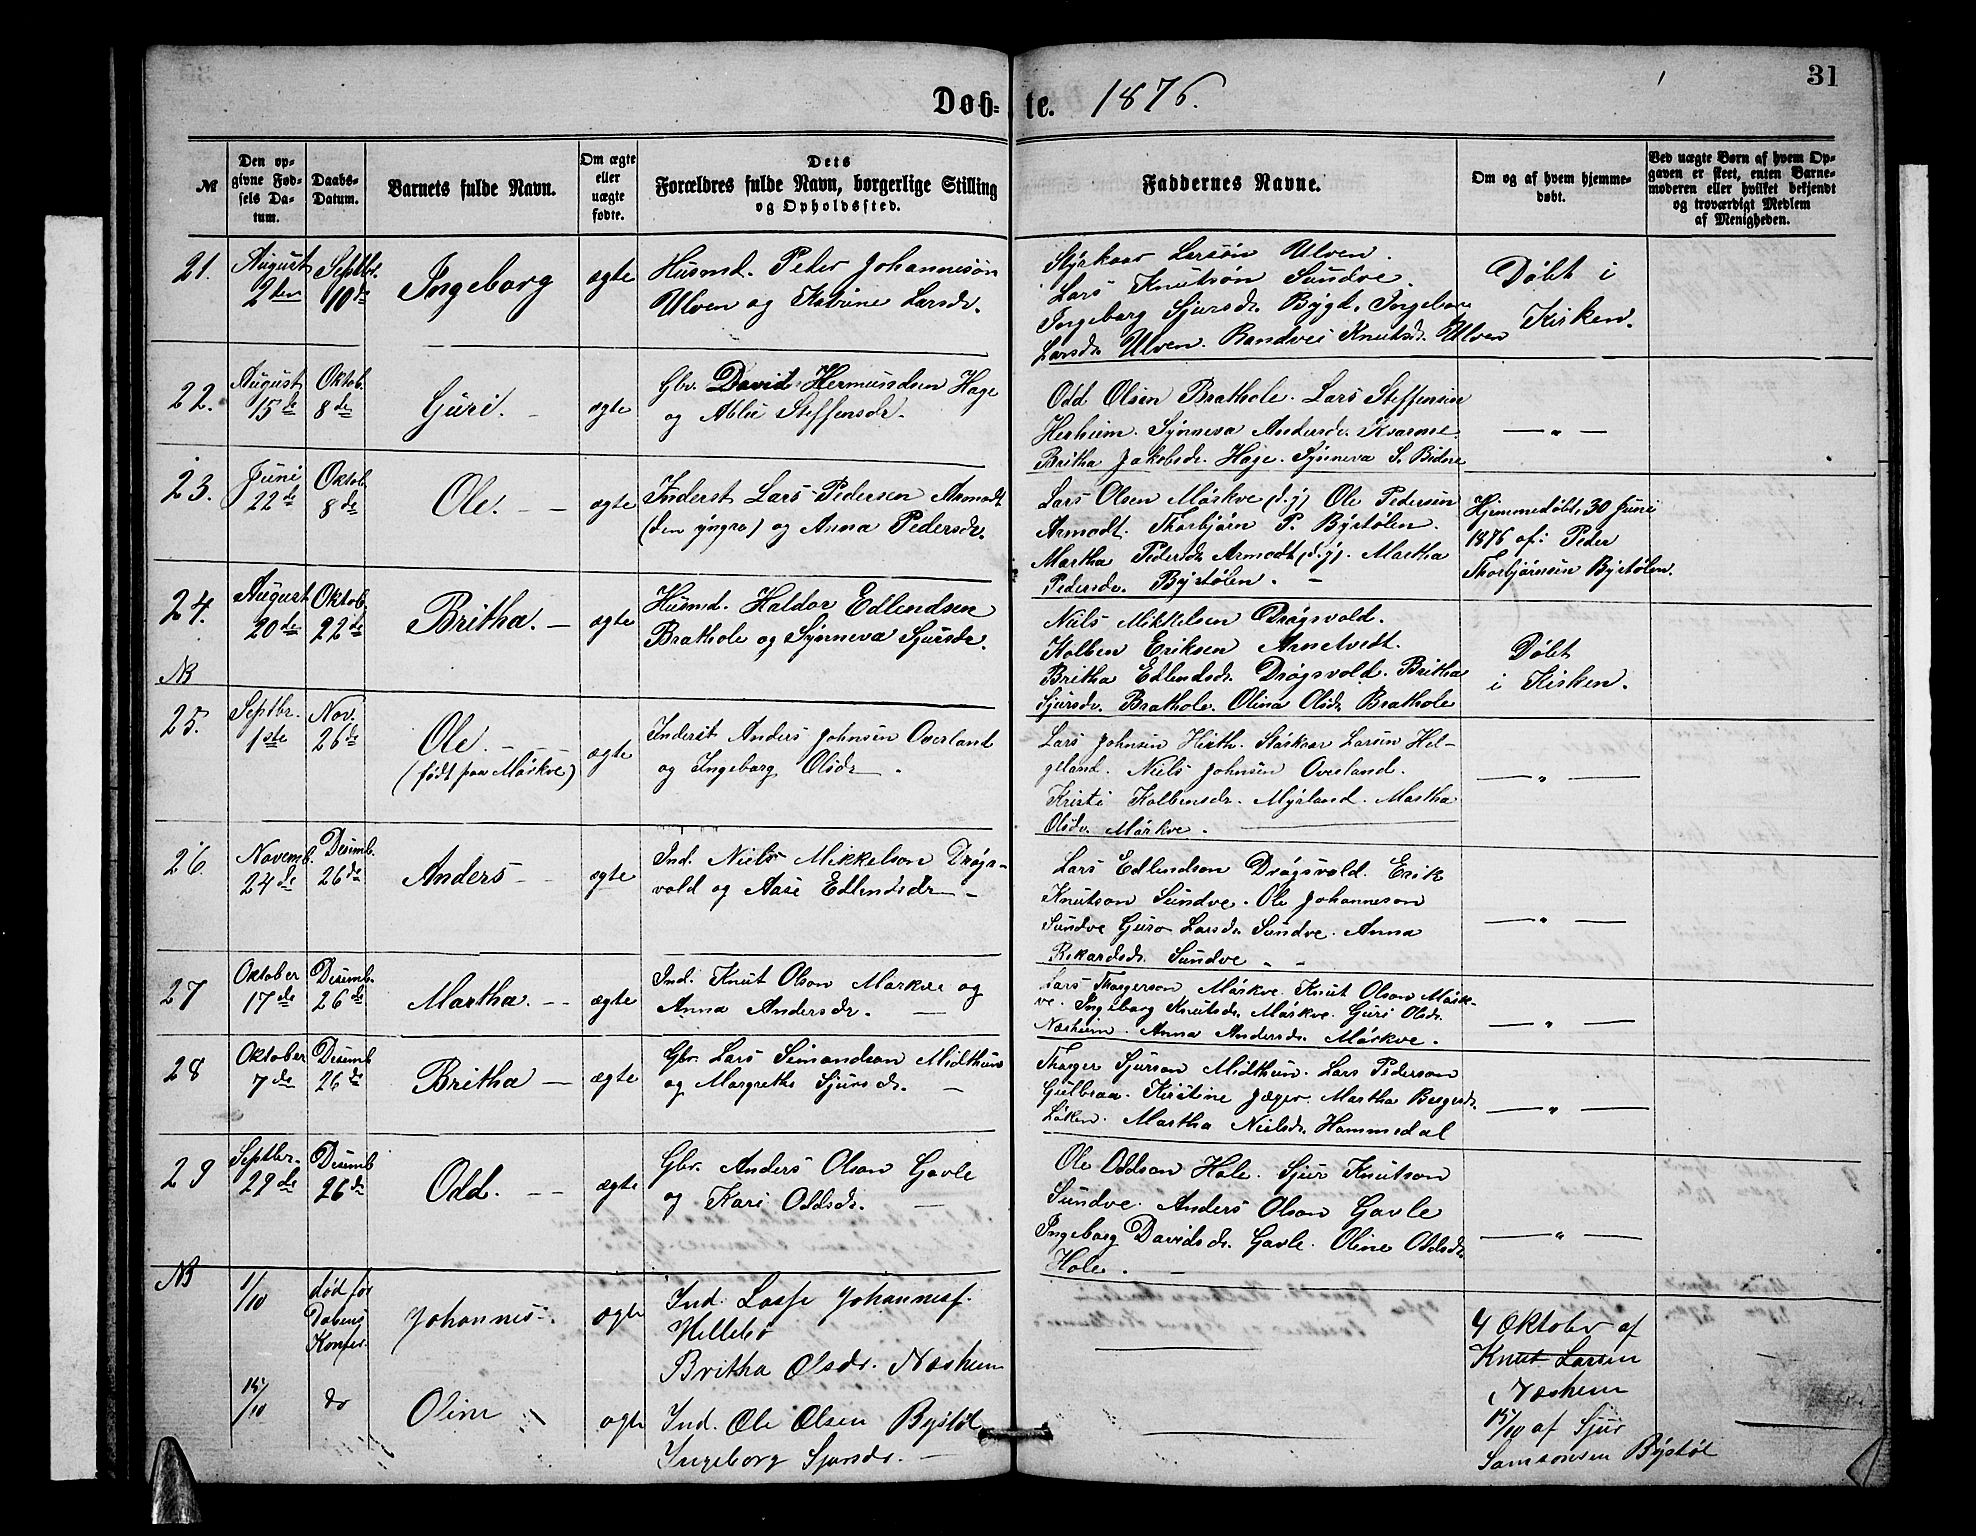 31
Døb- te. 1876.
№
Den op-
givne Fød-
sels Da-
tum.
Daabs-
Datum.
Barnets fulde Navn.
Om ægte
eller
uægte
fødte.
Dets
Forældres fulde Navn, borgerlige Stilling
og Opholdssted.
Faddernes Navne.
Om og af hvem hjemme-
døbt.
Ved uægte Børn af hvem Op-
gaven er skeet, enten Barne-
moderen eller hvilket bekjendt
og troværdigt Medlem
af Menigheden.
21.
August
2den
Septbr.
10de
Ingeborg
ægte
Husmd. Peder Johannesøn
Ulven og Katrine Larsdr.
Styrkaar Larsøn Ulven.
Lars Knutsøn Sundve.
Ingeborg Sjursdr. Bygd. Ingebor
Larsdr. Ulven. Randvei Knutsdr. Ulven
Døbt i
Kirken.
22.
August
15de
Oktob.
8de
Guri.
ægte
Gbr. David Hermundsen Hage
og Ablie Steffensdr.
Odd Olsen Brathole. Lars Steffensen
Herheim. Synneva Andersdr. Kvarme.
Britha Jakobsdr. Hage. Synneva S. Bidne
— " —
23.
Juni
22de
Oktob.
8de
Ole.
ægte
Inderst Lars Pedersen Armodt
(den yngre) og Anna Pedersdr.
Lars Olsen Mørkve (d.y.) Ole Pedersen
Armodt. Thorbjørn P. Bystølen.
Martha Pedersdr. Armodt (d.y.). Martha
Pedersdr. Bystølen.
Hjemmedøbt, 30 Juni
1876 af: Peder
Thorbjørnsen Bystølen.
24.
August
20de
Oktob.
22de
Britha.
ægte
Husmd. Haldor Edlendsen
Brathole og Synneva Sjursdr.
Niels Mikkelsen Drøgsvold.
Kolben Eriksen Arnetvedt.
Britha Edlendsdr. Drøgsvold. Britha
Sjursdr. Brathole. Olina Olsdr. Brathole
Døbt
i Kirken.
NB
25.
Septbr.
1ste
Nov.
26de
Ole.
(født paa Mørkve)
ægte
Inderst Anders Johnsen Overland
og Ingeborg Olsdr.
Lars Johnsen Hirth. Størkaar Larsen Hel-
geland. Niels Johnsen Overland.
Kristi Kolbensdr. Myrland. Martha
Olsdr. Mørkve.
— " —
26
Novemb.
24de
Desemb.
26de
Anders
ægte
Ind. Niels Mikkelson Drøgs-
vold og Aase Edlendsdr.
Lars Edlendson Drøgsvold. Erik
Knutson Sundve. Ole Johanneson
Sundve Guro Larsdr. Sundve. Anna
Rikardsdr. Sundve
— " —
27
Oktober
17de
Desemb.
26de
Martha.
ægte
Ind. Knut Olson Mørkve og
Anna Andersdr.
Lars Thorgerson Mørkve. Knut Olson Mørk-
ve. Ingeborg Knutsdr. Mørkve. Guri Olsdr.
Næsheim. Anna Andersdr. Mørkve.
— " —
28
Oktober
7de
Desemb.
26de
Britha
ægte
Gbr. Lars Simondson Midthun
og Margretha Sjursdr.
Thorger Sjurson Midthun. Lars Pederson
Gulbraa. Kirstine Jæger. Martha Børgersdr.
Løken. Martha Nielsdr. Hommedal
— " —
29
Septbr.
29de
Desemb
26de
Odd.
ægte
Gbr. Anders Olson Gavle
og Kari Oddsdr.
Ole Oddson Hole. Sjur Knutson
Sundve. Anders Olson Gavle
Ingeborg Davidsdr. Gavle. Oline Oddsdr.
Hole.
— " —
NB
1/10
død før
Dabens
Konfir.
Johannes
ægte
Ind. Lasse Johannesf.
Hillebø
Britha Olsdr. Næsheim
4 Oktober af
Knut Larsen
Næsheim
15/10
do
Oline
ægte
Ind. Ole Olsen Bystøl
Ingeborg Sjursdr.
15/10 af Sjur
Samsonsen Bystøl